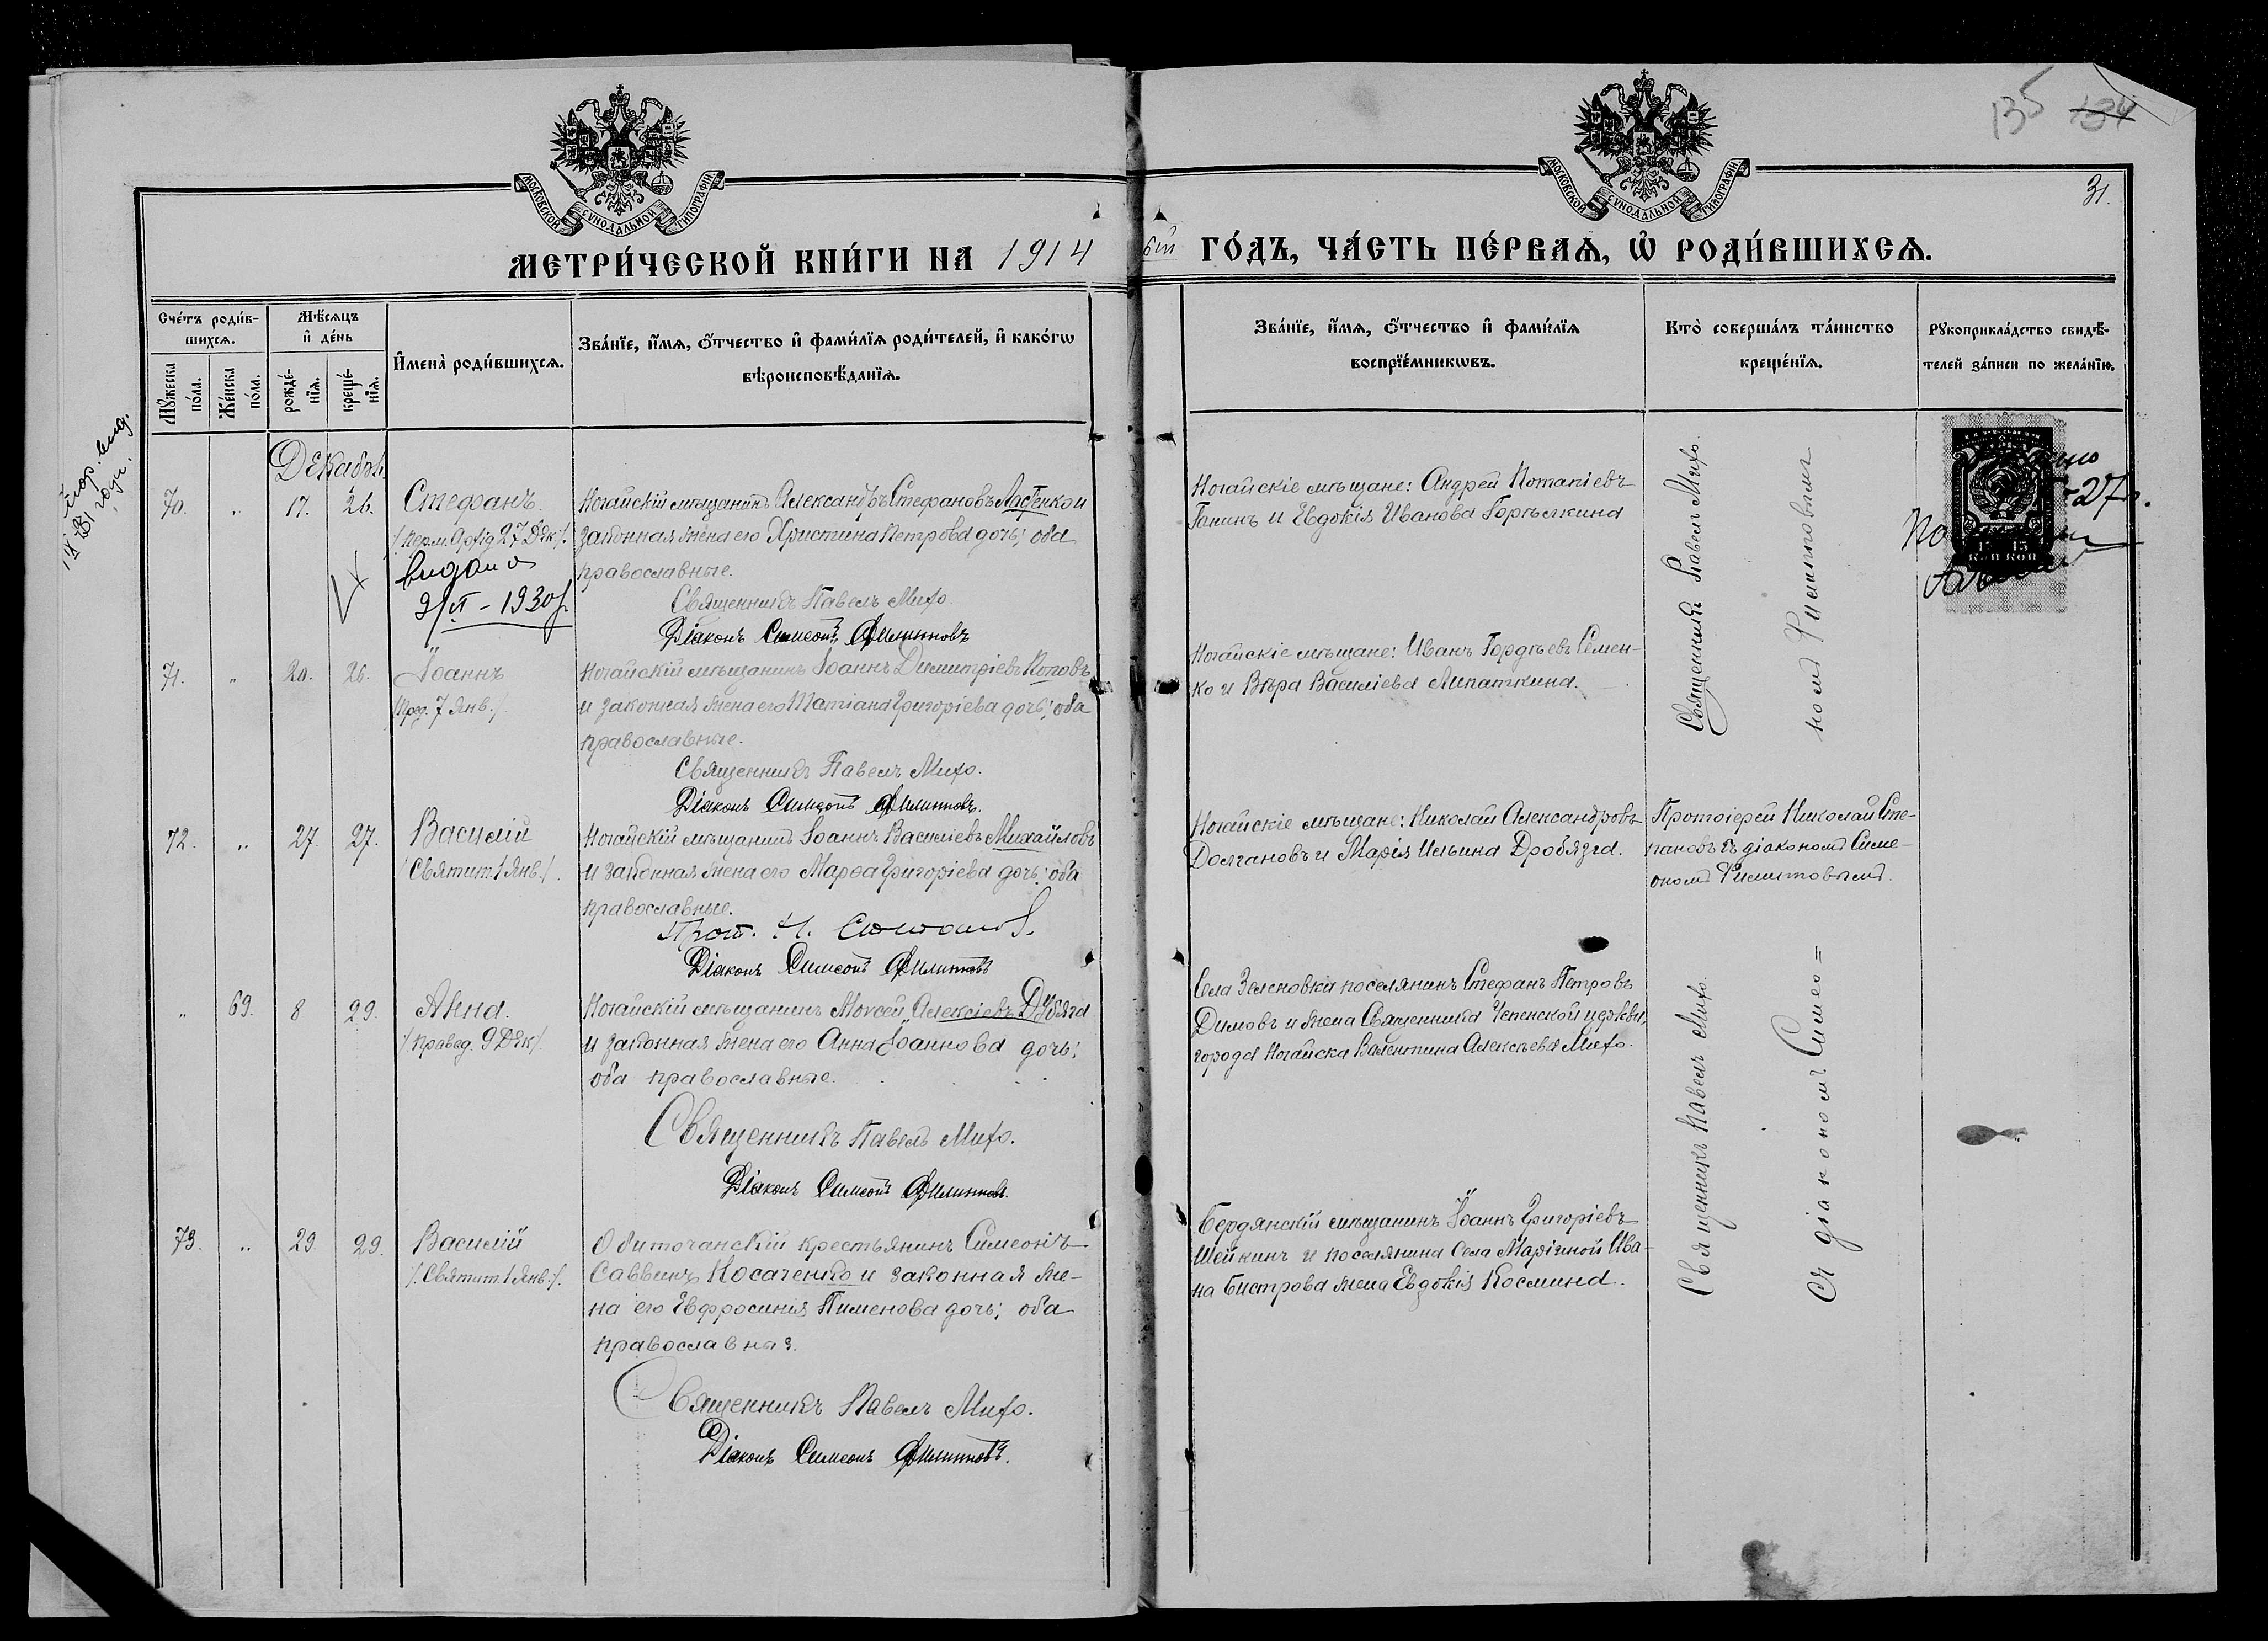 135 134
31.
МОСКОВСКОЙ СѴНОДАЛЬНОЙ ТИПОГРАФІИ
МОСКОВСКОЙ СѴНОДАЛЬНОЙ ТИПОГРАФІИ
МЕТРИ́ЧЕСКОЙ КНИ́ГИ НА 1914 ый ГО́ДЪ, ЧА́СТЬ ПЕ́РВАѦ, Ѡ҆ РОДИ́ВШИХСѦ.
Сче́тъ роди́в-
шихсѧ.
Мꙋ́жеска по́ла.
Же́нска по́ла.
Мѣ́сѧцъ и҆ де́нь
рожде́-нїѧ.
креще́-нїѧ.
И҆мена̀ роди́вшихсѧ.
Зва́нїе, и҆́мѧ, ѻ҆́тчество и҆ фами́лїѧ роди́телей, и҆ како́гѡ
вѣроисповѣ́данїѧ.
Зва́нїе, и҆́мѧ, ѻ҆́тчество и҆ фами́лїѧ
воспрїе́мникѡвъ.
Кто̀ соверша́лъ та́инство
креще́нїѧ.
Рꙋкоприкла́дство свидѣ́-
телей за́писи по жела́нїю.
Декабрь.
70. „ 17. 26. Стефанъ
27 Дек.
видано
2/VI – 1930 г.
Ногайскій мѣщанинъ Александръ Стефановъ Ластенко и
законная жена его Христина Петрова дочь; оба
православные.
Священникъ Павелъ Михо.
Діаконъ Симеонъ Филипповъ
Ногайскіе мѣщане: Андрей Потапіевъ
Ганинъ и Евдокія Иванова Горѣлкина
Священникъ Павелъ Михо.
номъ Филипповымъ
15 15
КОП КОП
71. „ 20. 26. Іоаннъ
Пред. 7 Янв.
Ногайскій мѣщанинъ Іоаннъ Димитріевъ Поповъ
и законная жена его Татіана Григоріева дочь; оба
православные.
Священникъ Павелъ Михо.
Діаконъ Симеонъ Филипповъ.
Ногайскіе мѣщане: Иванъ Гордѣевъ Семен-
ко и Вѣра Василіева Липаткина.
72. „ 27. 27. Василій
/Святит. 1 Янв./.
Ногайскій мѣщанинъ Іоаннъ Василіевъ Михайловъ
и законная жена его Марѳа Григоріева дочь; оба
православные.
Прот. Н. Степановъ.
Діаконъ Симеонъ Филипповъ
Ногайскіе мѣщане: Николай Александровъ
Долгановъ и Марія Ильина Дробязга.
Протоіерей Николай Сте-
пановъ съ діакономъ Симе-
ономъ Филипповымъ.
„ 69. 8 29. Анна.
/Правед. 9 Дек/.
Ногайскій мѣщанинъ Моѵсей Алексіевъ Дубяга
и законная жена его Анна Іоаннова дочь;
оба православные.
Священникъ Павелъ Михо.
Діаконъ Симеонъ Филипповъ.
Села Зеленовки поселянинъ Стефанъ Петровъ
Димовъ и жена Священника Успенской церкви,
города Ногайска Валентина Алексѣева Михо.
Священникъ Павелъ Михо.
Съ діакономъ Симео=
73. „ 29. 29. Василій
/. Святит. 1 Янв./.
Обиточанскій крестьянинъ Симеонъ
Саввинъ Косаченко и законная же-
на его Евфросинія Пименова дочь; оба
православная.
Священникъ Павелъ Михо.
Діаконъ Симеонъ Филипповъ.
Бердянскій мѣщанинъ Іоаннъ Григоріевъ
Шейкинъ и поселянина Села Маріиной Ива-
на Бистрова жена Евдокія Космина.